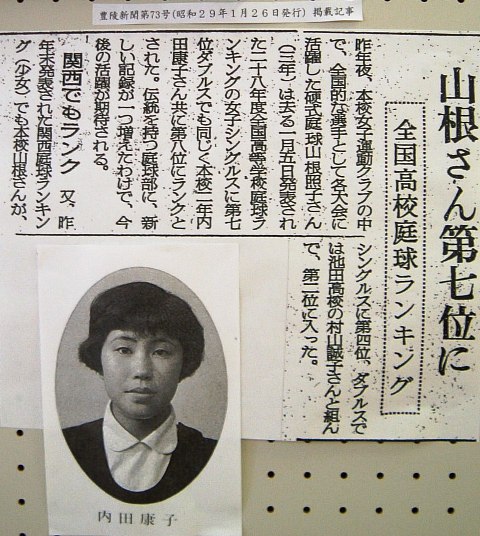 豊陵新聞第73号(昭和29年1月26日発行) 掲載記事
山根さん第七位に
全国高校庭球ランキング
昨年夜、本校女子運動クラブの中
で、全国的な選手として各大会に
活躍した硬式庭球山根照子さん
(三年)は去る一月五日発表され
た二十八年度全国高等学校庭球ラ
ンキングの女子シングルスに第七
位ダブルスでも同じく本校二年内
田康子さん共に第八位にランクと
された。伝統を持つ庭球部に、新
しい記録が一つ増えたわけで、今
後の活躍が期待される。
関西でもランク 又、昨
年末発表された関西庭球ランキン
グ(少女)でも本校山根さんが、
シングルスに第四位、ダブルスで
は池田高校の村山誠子さんと組ん
で、第二位に入った。
内田康子